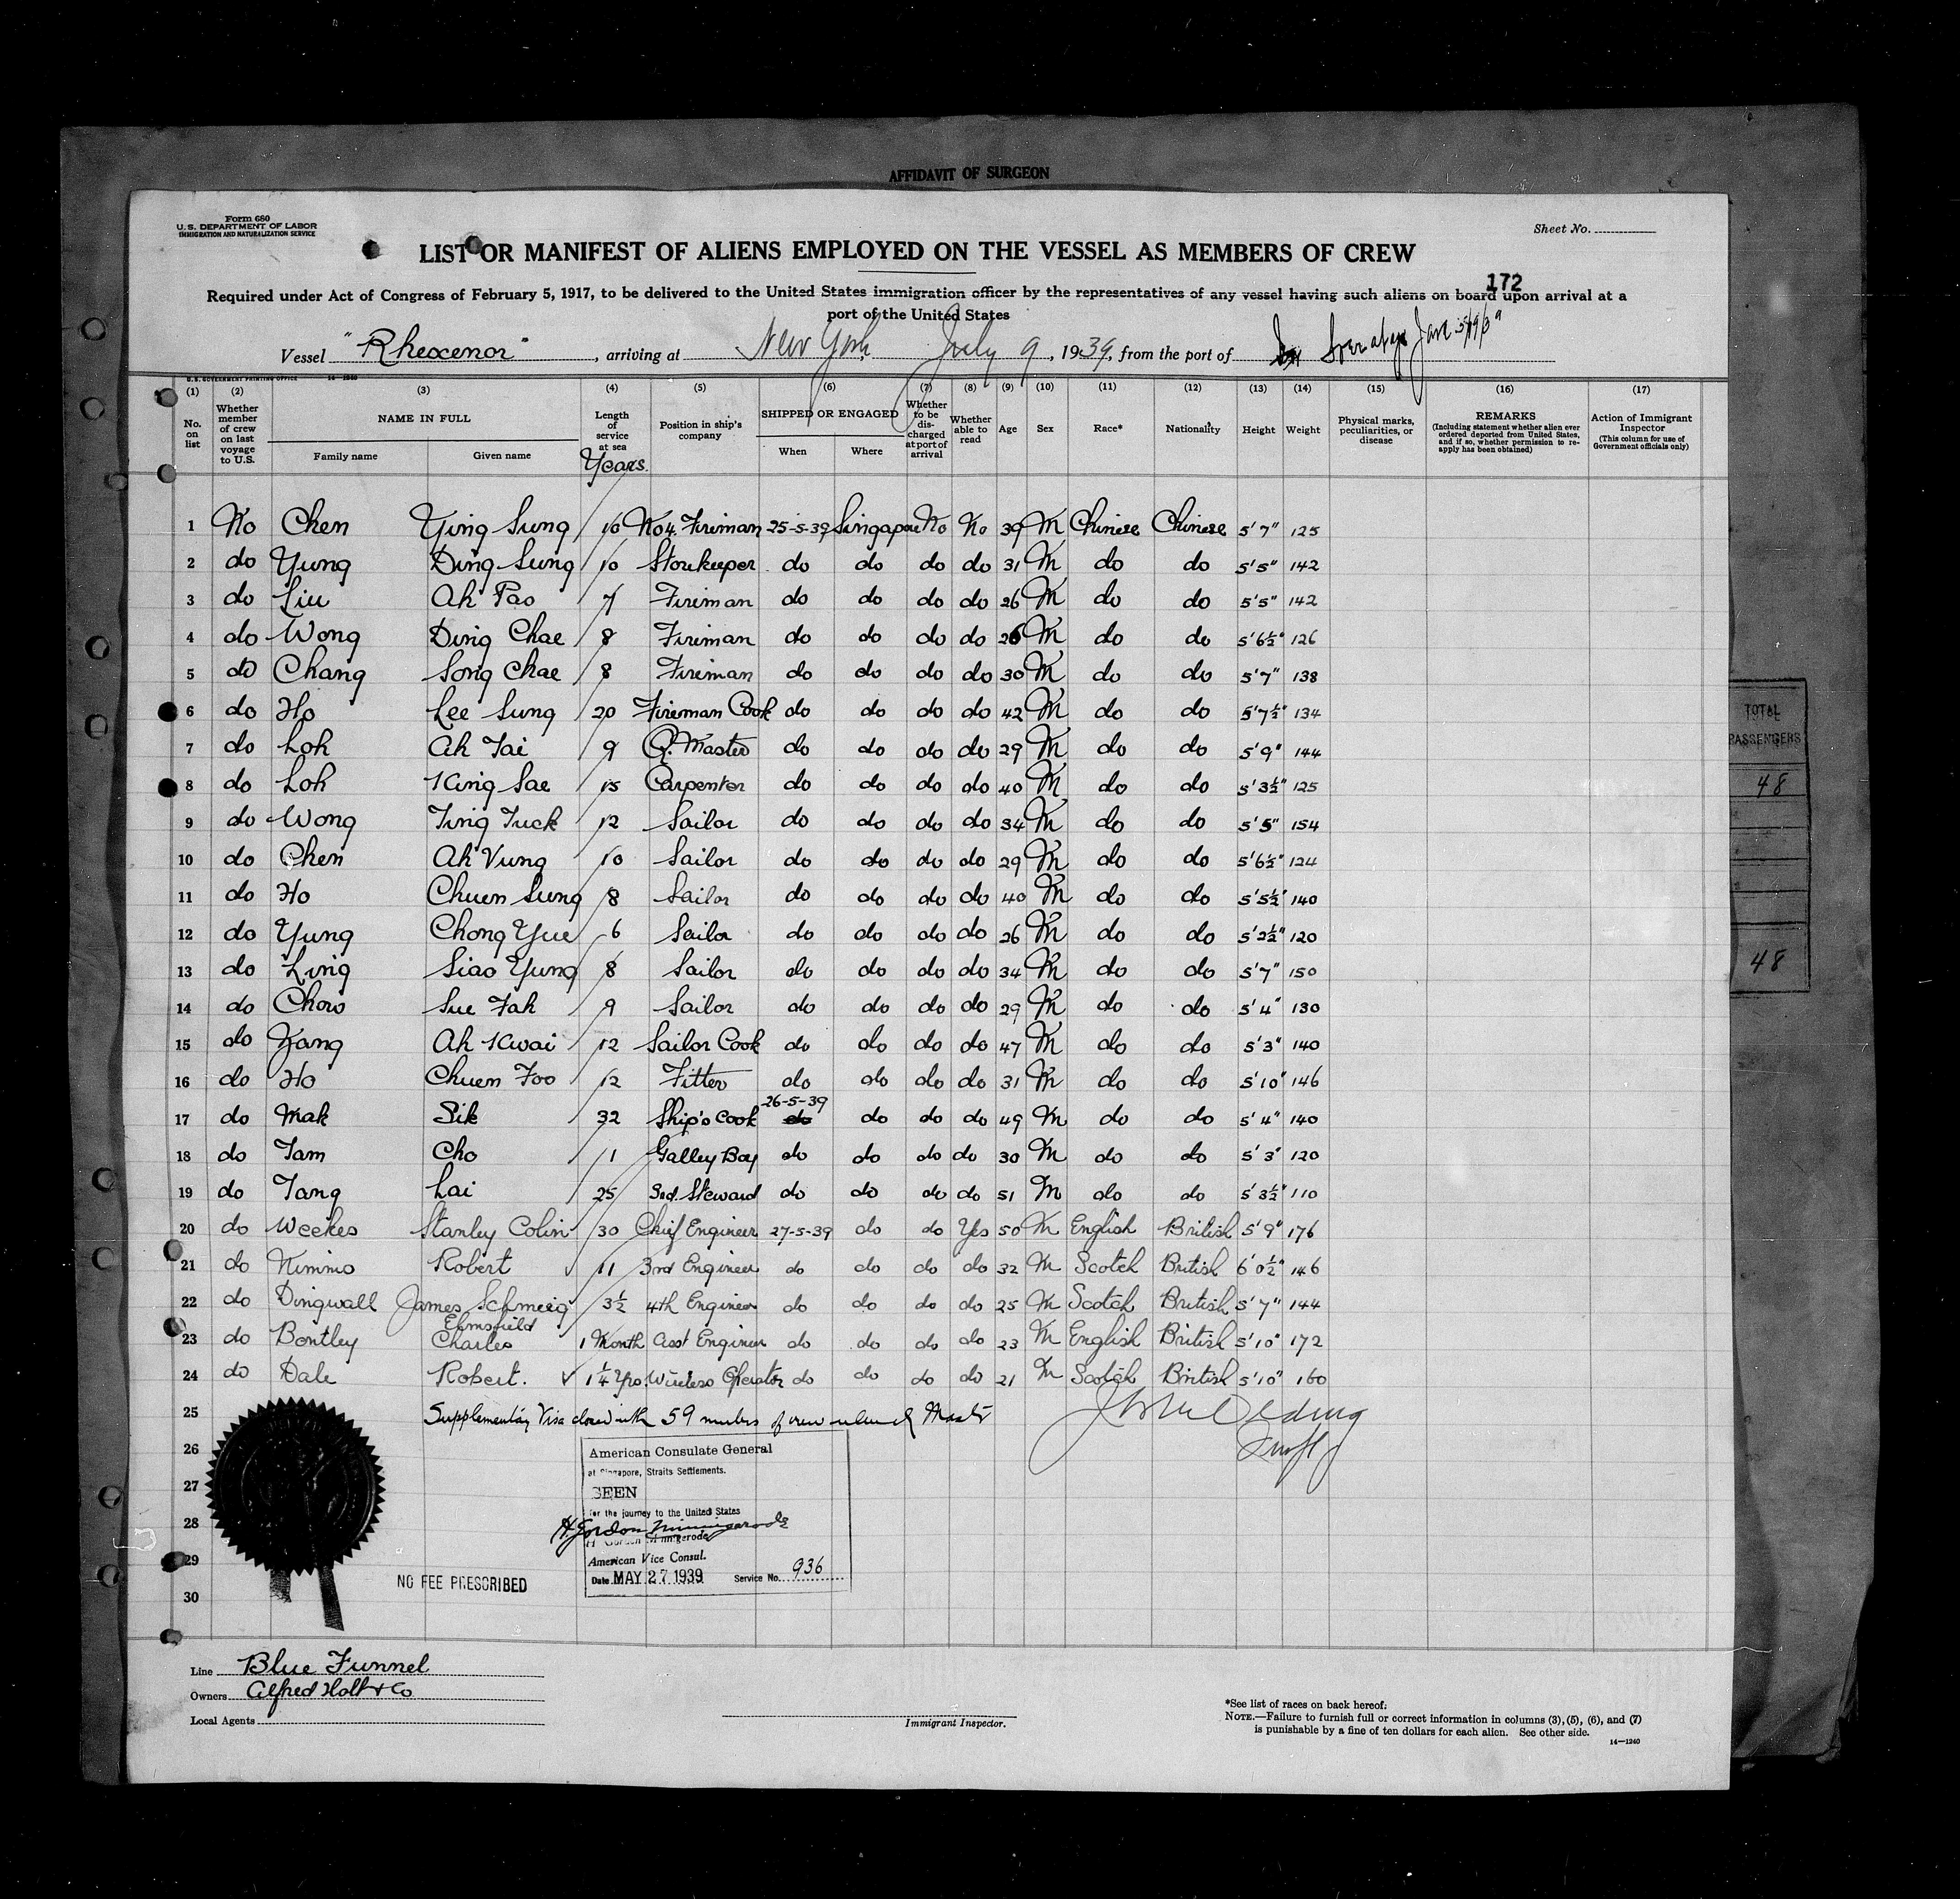 AFFIDAVIT OF SURGEON
Form 680
U. S. DEPARTMENT OF LABOR
IMMIGRATION AND NATURALIZATION SERVICE
Sheet No.
LIST OR MANIFEST OF ALIENS EMPLOYED ON THE VESSEL AS MEMBERS OF CREW
172
Required under Act of Congress of February 5, 1917, to be delivered to the United States immigration officer by the representatives of any vessel having such aliens on board upon arrival at a
port of the United States
Vessel "Rhexenor", arriving at New York, July 9, 1939, from the port of
U. S. GOVERNMENT PRINTING OFFICE 14-1240
(1) (2) (3) (4) (5) (6) (7) (8) (9) (10) (11) (12) (13) (14) (15) (16) (17)
No. on list
Whether member of crew on last voyage to U.S.
NAME IN FULL
Family name
Given name
Length of service at sea
Years.
Position in ship's company
SHIPPED OR ENGAGED
When
Where
Whether to be discharged at port of arrival
Whether able to read
Age
Sex
Race*
Nationality
Height
Weight
Physical marks, peculiarities, or disease
REMARKS
(Including statement whether alien ever ordered deported from United States, and if so, whether permission to re-apply has been obtained)
Action of Immigrant Inspector
(This column for use of Government officials only)
1 No Chen Ying Sung 10 No 4. Fireman 25-5-39 Singapore No No 39 M Chinese Chinese 5'7" 125
2 do Yung Ding Sung 10 Storekeeper do do do do 31 M do do 5'5" 142
3 do Liu Ah Pao 7 Fireman do do do do 26 M do do 5'5" 142
4 do Wong Ding Chae 8 Fireman do do do do 26 M do do 5'6½" 126
5 do Chang Song Chae 8 Fireman do do do do 30 M do do 5'7" 138
6 do Ho Lee Sung 20 Fireman Cook do do do do 42 M do do 5'7½" 134
7 do Loh Ah Tai 9 Q. Master do do do do 29 M do do 5'9" 144
8 do Loh King Sae 15 Carpenter do do do do 40 M do do 5'3½" 125
9 do Wong Ting Tuck 12 Sailor do do do do 34 M do do 5'5" 154
10 do Chen Ah Vung 10 Sailor do do do do 29 M do do 5'6½" 124
11 do Ho Chuen Sung 8 Sailor do do do do 40 M do do 5'5½" 140
12 do Yung Chong Yue 6 Sailor do do do do 26 M do do 5'2½" 120
13 do Ling Siao Yung 8 Sailor do do do do 34 M do do 5'7" 150
14 do Chow Sue Fah 9 Sailor do do do do 29 M do do 5'4" 130
15 do Zang Ah Kwai 12 Sailor Cook do do do do 47 M do do 5'3" 140
16 do Ho Chuen Foo 12 Fitter do do do do 31 M do do 5'10" 146
17 do Mak Sik 32 Ship's Cook 26-5-39 do do do 49 M do do 5'4" 140
18 do Tam Cho 1 Galley Boy do do do do 30 M do do 5'3" 120
19 do Tang Lai 25 3rd. Steward do do do do 51 M do do 5'3½" 110
20 do Weekes Stanley Colin 30 Chief Engineer 27-5-39 do do Yes 50 M English British 5'9" 176
21 do Nimmo Robert 11 3rd Engineer do do do do 32 M Scotch British 6'0½" 146
22 do Dingwall James Schmeig Elmsfield 3½ 4th Engineer do do do do 25 M Scotch British 5'7" 144
23 do Bontley Charles 1 Month Asst Engineer do do do do 23 M English British 5'10" 172
24 do Dale Robert. 1¼ Yrs. Wireless Operator do do do do 21 M Scotch British 5'10" 160
25 Supplementary Visa closed with 59 members of crew Master
26
27
28
29
30
American Consulate General
at Singapore, Straits Settlements.
SEEN
for the journey to the United States
H. Gordon Minnigerode
H Gordon Minnigerode
American Vice Consul.
Date MAY 27 1939 Service No. 936
NO FEE PRESCRIBED
Line Blue Funnel
Owners Alfred Holt & Co
Local Agents
Immigrant Inspector.
*See list of races on back hereof.
NOTE.—Failure to furnish full or correct information in columns (3), (5), (6), and (7)
is punishable by a fine of ten dollars for each alien. See other side.
14—1240
TOTAL
PASSENGERS
48
48